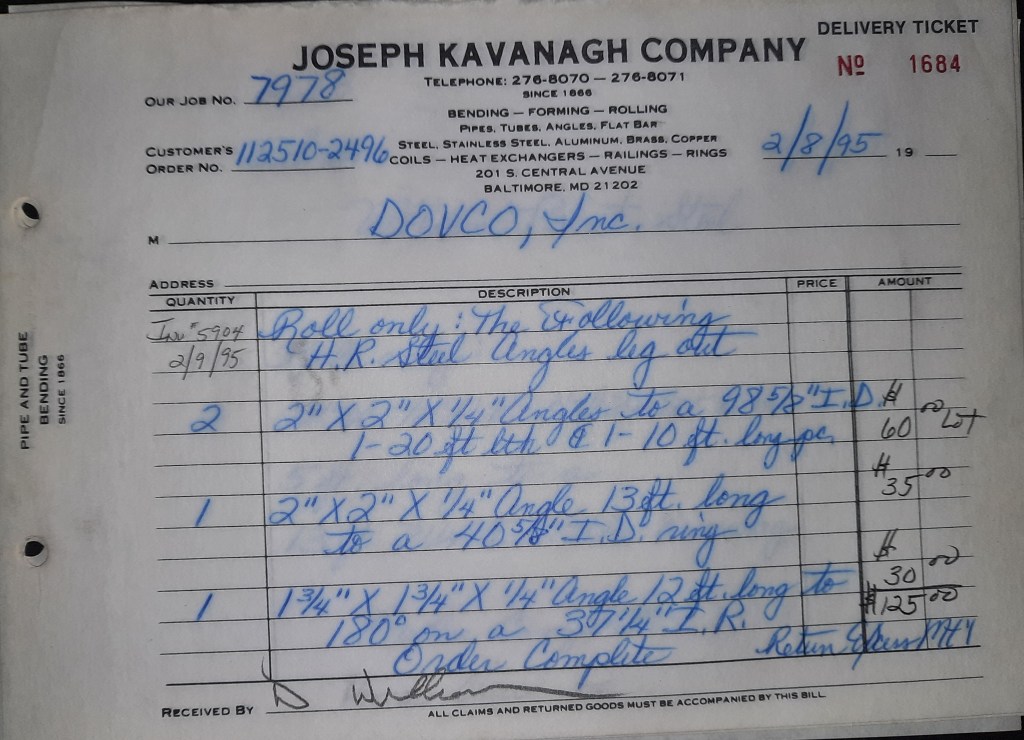 DELIVERY TICKET
JOSEPH KAVANAGH COMPANY
Nº 1684
TELEPHONE: 276-8070 — 276-8071
SINCE 1866
OUR JOB NO. 7978
BENDING — FORMING — ROLLING
PIPES, TUBES, ANGLES, FLAT BAR
CUSTOMER'S ORDER NO. 112510-2496
STEEL, STAINLESS STEEL, ALUMINUM, BRASS, COPPER
COILS — HEAT EXCHANGERS — RAILINGS — RINGS
2/8/95 19
201 S. CENTRAL AVENUE
BALTIMORE, MD 21202
M DOVCO, Inc.
ADDRESS
QUANTITY DESCRIPTION PRICE AMOUNT
Inv # 5904 Roll only: The Following
2/9/95 H.R. Steel Angles leg out
2 2" X 2" X 1/4" Angles to a 98 5/8" I.D. $
1-20 ft lth & 1-10 ft. long pc 60 00 Lot
$
35 00
1 2" X 2" X 1/4" Angle 13 ft. long
to a 40 5/8" I.D. ring
$
30 00
1 1 3/4" X 1 3/4" X 1/4" Angle 12 ft. long to $125 00
180° on a 37 1/4" I.R.
Order Complete Return
RECEIVED BY D William
ALL CLAIMS AND RETURNED GOODS MUST BE ACCOMPANIED BY THIS BILL
PIPE AND TUBE
BENDING
SINCE 1866